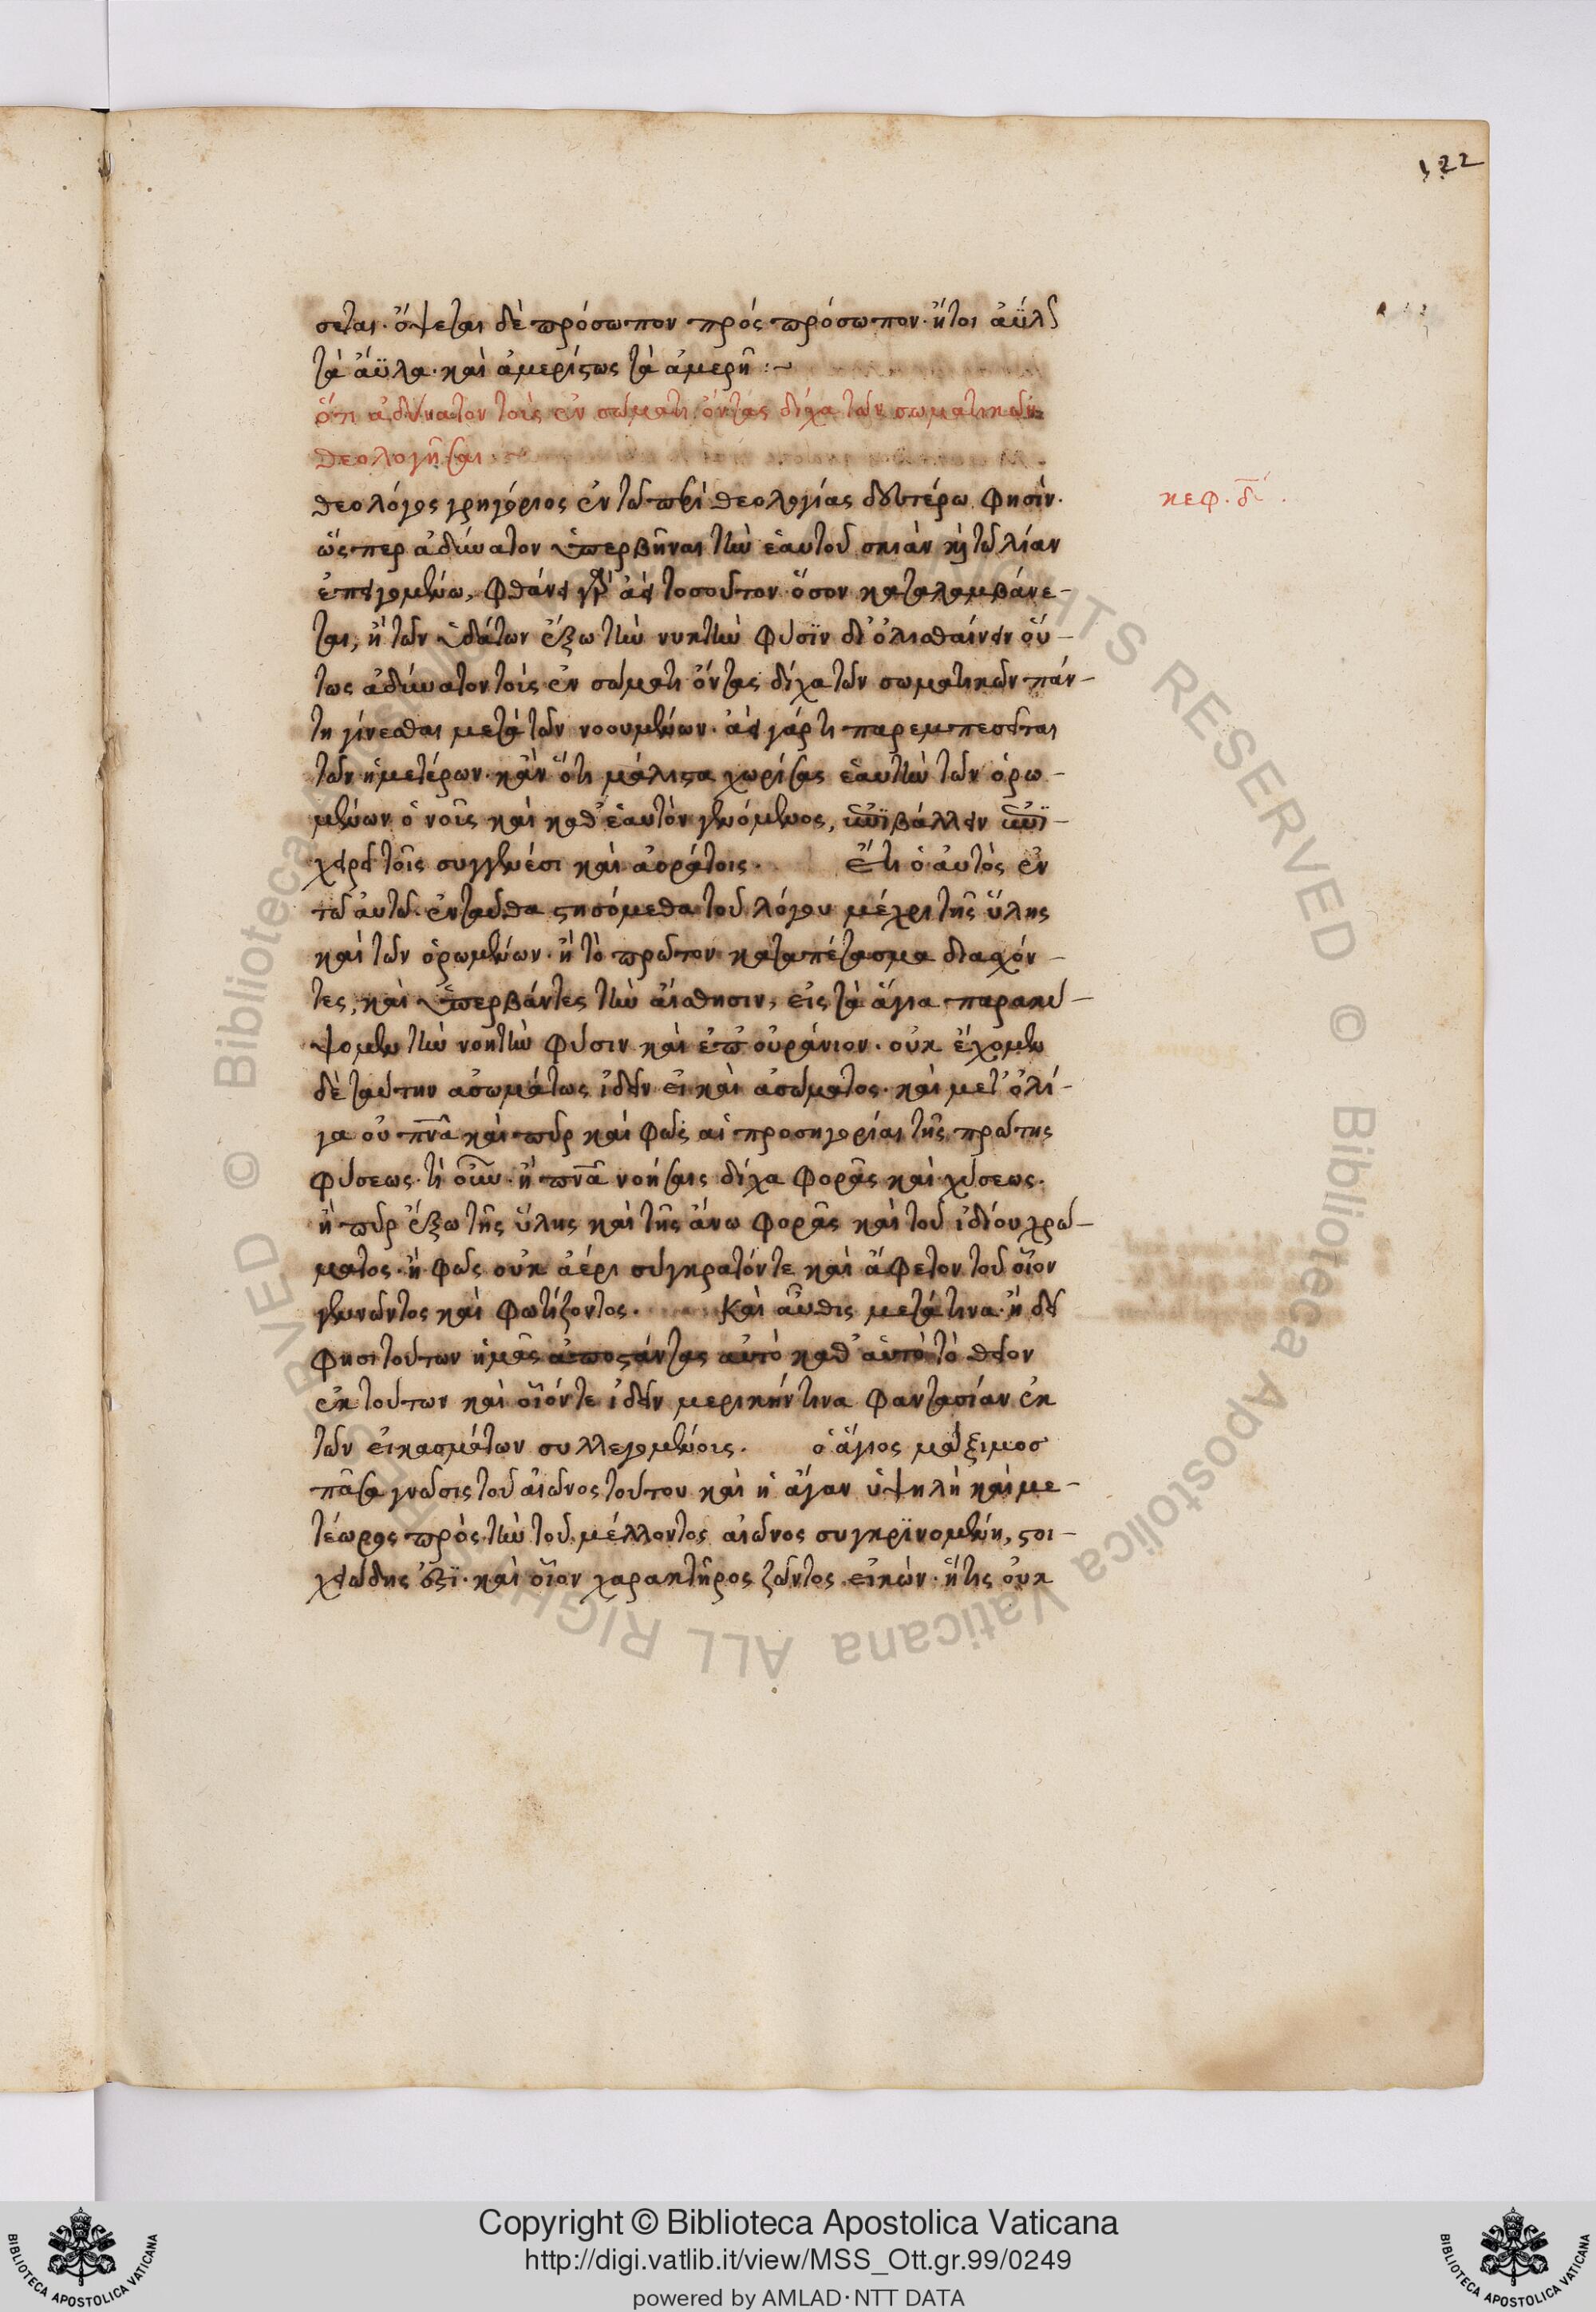 122
σεται· ὄψεται δὲ πρόσωπον πρὸς πρόσωπον· ἤτοι ἀΰλως
τὰ ἄϋλα· καὶ ἀμερίστως τὰ ἀμερῆ :~
ὅτι ἀδύνατον τοῖς ἐν σώματι ὄντας δίχα τῶν σωματικῶν
θεολογῆσαι
κεφ. δ
θεολόγος γρηγόριος ἐν τῶ περὶ θεολογίας δευτέρω φησίν·
ὥς περ ἀδύνατον ὑπερβῆναι τὴν ἑαυτοῦ σκιὰν κὶ τῶ λίαν
ἐπειγομένω, φθάνει γὰρ ἀεὶ τοσοῦτον ὅσον καταλαμβάνε-
ται, ἢ τῶν ὑδάτων ἔξω τὴν νυκτὴν φύσϊν δι' ὀλισθαίνειν οὕ-
τως ἀδύνατον τοῖς ἐν σώματι ὄντας δίχα τῶν σωματικῶν πάν-
τη γίνεσθαι μετὰ τῶν νοουμένων· ἀεὶ γάρ τι παρεμπεσεῖται
τῶν ἡμετέρων· κἂν ὅτι μάλιστα χωρίσας ἑαυτὴν τῶν ὁρω-
μένων ὁ νοῦς καὶ καθ' ἑαυτὸν γενόμενος, προσβάλλειν ἐπϊ-
χειρεῖ τοῖς συγγενέσι καὶ ἀοράτοις. ἔτι ὁ αὐτὸς ἐν
τῶ αὐτῶ· ἐνταῦθα στησόμεθα τοῦ λόγου μέχρι τῆς ὕλης
καὶ τῶν ὁρωμένων· ἢ τὸ πρῶτον καταπέτασμα διασχόν-
τες, καὶ ὑπερβάντες τὴν αἴσθησιν, εἰς τὰ ἅγια παρακύ-
ψομεν τὴν νοητὴν φύσιν καὶ ἐπουράνιον· οὐκ ἔχομεν
δὲ ταύτην ἀσωμάτως ἰδεῖν εἰ καὶ ἀσώματος· καὶ μετ' ὀλί-
γα οὐ πνα καὶ πῦρ καὶ φῶς αἱ προσηγορίαι τῆς πρώτης
φύσεως· τί οὖν· ἢ πνα νοήσαις δίχα φορᾶς καὶ χύσεως·
ἢ πῦρ ἔξω τῆς ὕλης καὶ τῆς ἄνω φορᾶς καὶ τοῦ ἰδίου χρώ-
ματος· ἢ φῶς οὐκ ἀέρι συγκρατόν τε καὶ ἄφετον τοῦ οἷον
γεννῶντος καὶ φωτίζοντος. Καὶ αὖθις μετά τινα· ἢ δεῖ
φησι τούτων ἡμᾶς ἀποστάντας αὐτὸ καθ' αὑτὸ τὸ θεῖον
ἐκ τούτων καὶ οἷόν τε ἰδεῖν μερικήν τινα φαντασίαν ἐκ
τῶν εἰκασμάτων συλλεγομένοις. ὁ ἅγιος μάξιμος
πᾶσα γνῶσις τοῦ αἰῶνος τούτου καὶ ἡ ἄγαν ὑψηλὴ καὶ με-
τέωρος πρὸς τὴν τοῦ μέλλοντος αἰῶνος συγκρϊνομένη, στοι-
χειώδης ἐστϊ· καὶ οἷον χαρακτῆρος ζῶντος εἰκών· ἥτις οὐκ
Copyright © Biblioteca Apostolica Vaticana
http://digi.vatlib.it/view/MSS_Ott.gr.99/0249
powered by AMLAD·NTT DATA
BIBLIOTECA APOSTOLICA VATICANA
BIBLIOTECA APOSTOLICA VATICANA
© Biblioteca Apostolica Vaticana ALL RIGHTS RESERVED